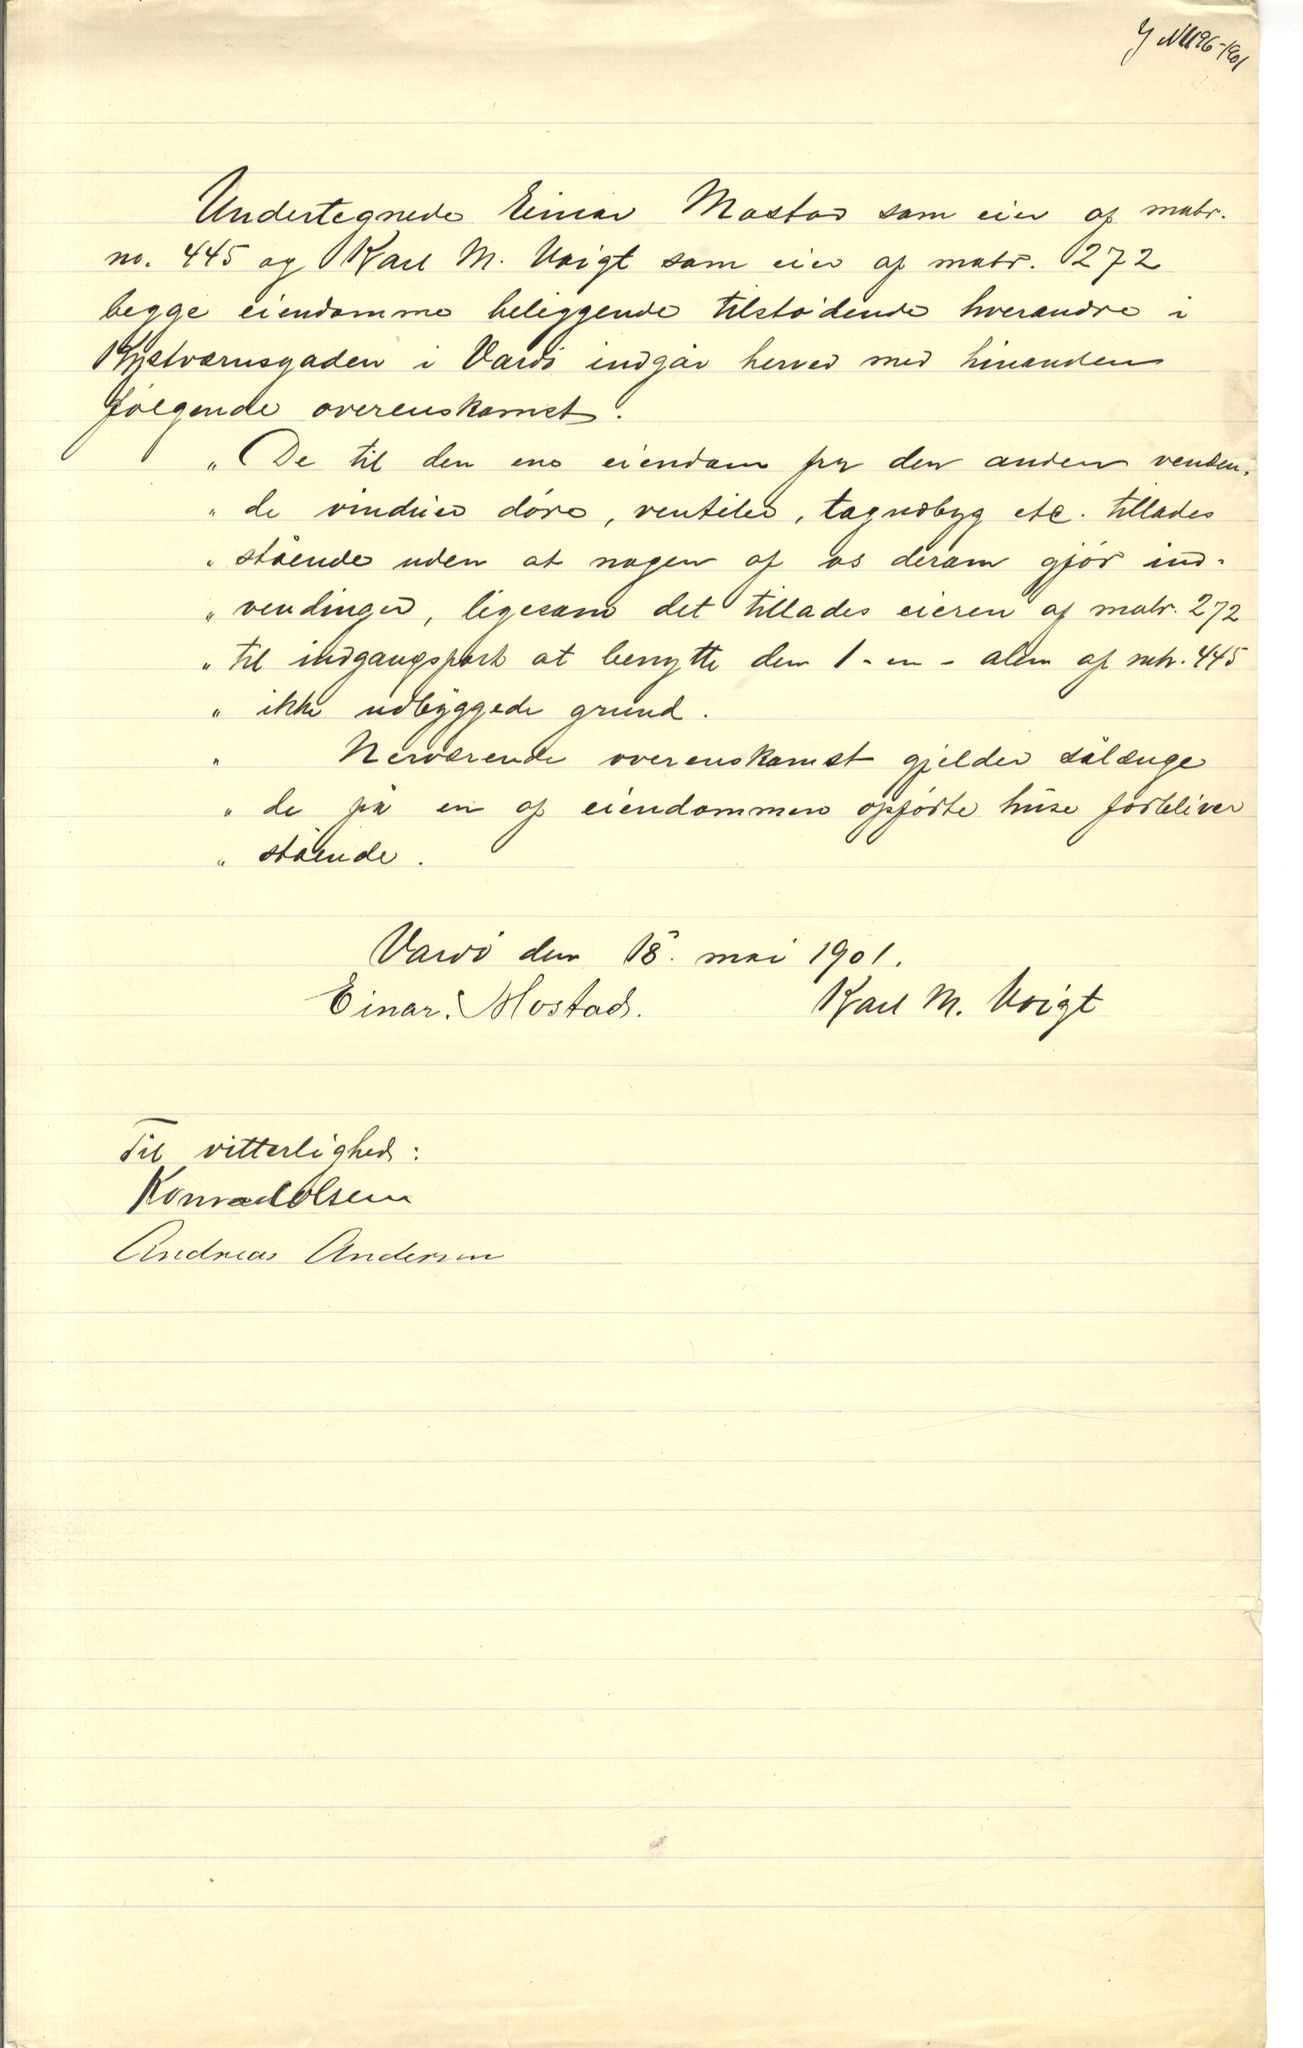 J No 1196-1901
Undertegnede Einar Mostad som eier af matr.
no. 445 og Karl M. Voigt som eier af matr. 272
begge eiendomme beliggende tilstødende hverandre i
Kystværnsgaden i Vardö indgår herved med hinanden
følgende overenskomst.
„ De til den ene eiendom fra den anden venden-
„ de vinduer døre, ventiler, tagudbyg etc. tillades
„ stående uden at nogen af os derom gjör ind-
„ vendinger, ligesom det tillades eieren af matr. 272
„ til indgangsport at benytte den 1-en-alen af mtr. 445
„ ikke udbyggede grund.
„ Nerværende overenskomst gjelder sålænge
„ de på en af eiendommene opførte huse forbliver
„ stående.
Vardö den 18. mai 1901.
Einar Mostad. Karl M. Voigt
Til vitterlighed:
Konrad Olsen
Andreas Andersen